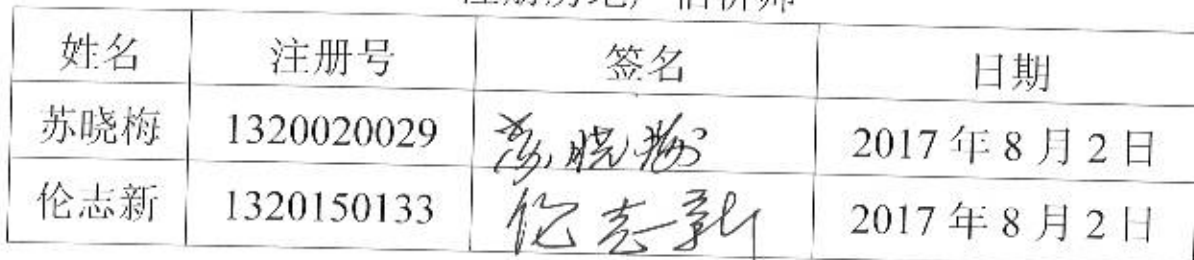 注册房地产估价师
姓名 注册号 签名 日期
苏晓梅 1320020029 苏晓梅 2017年8月2日
伦志新 1320150133 伦志新 2017年8月2日